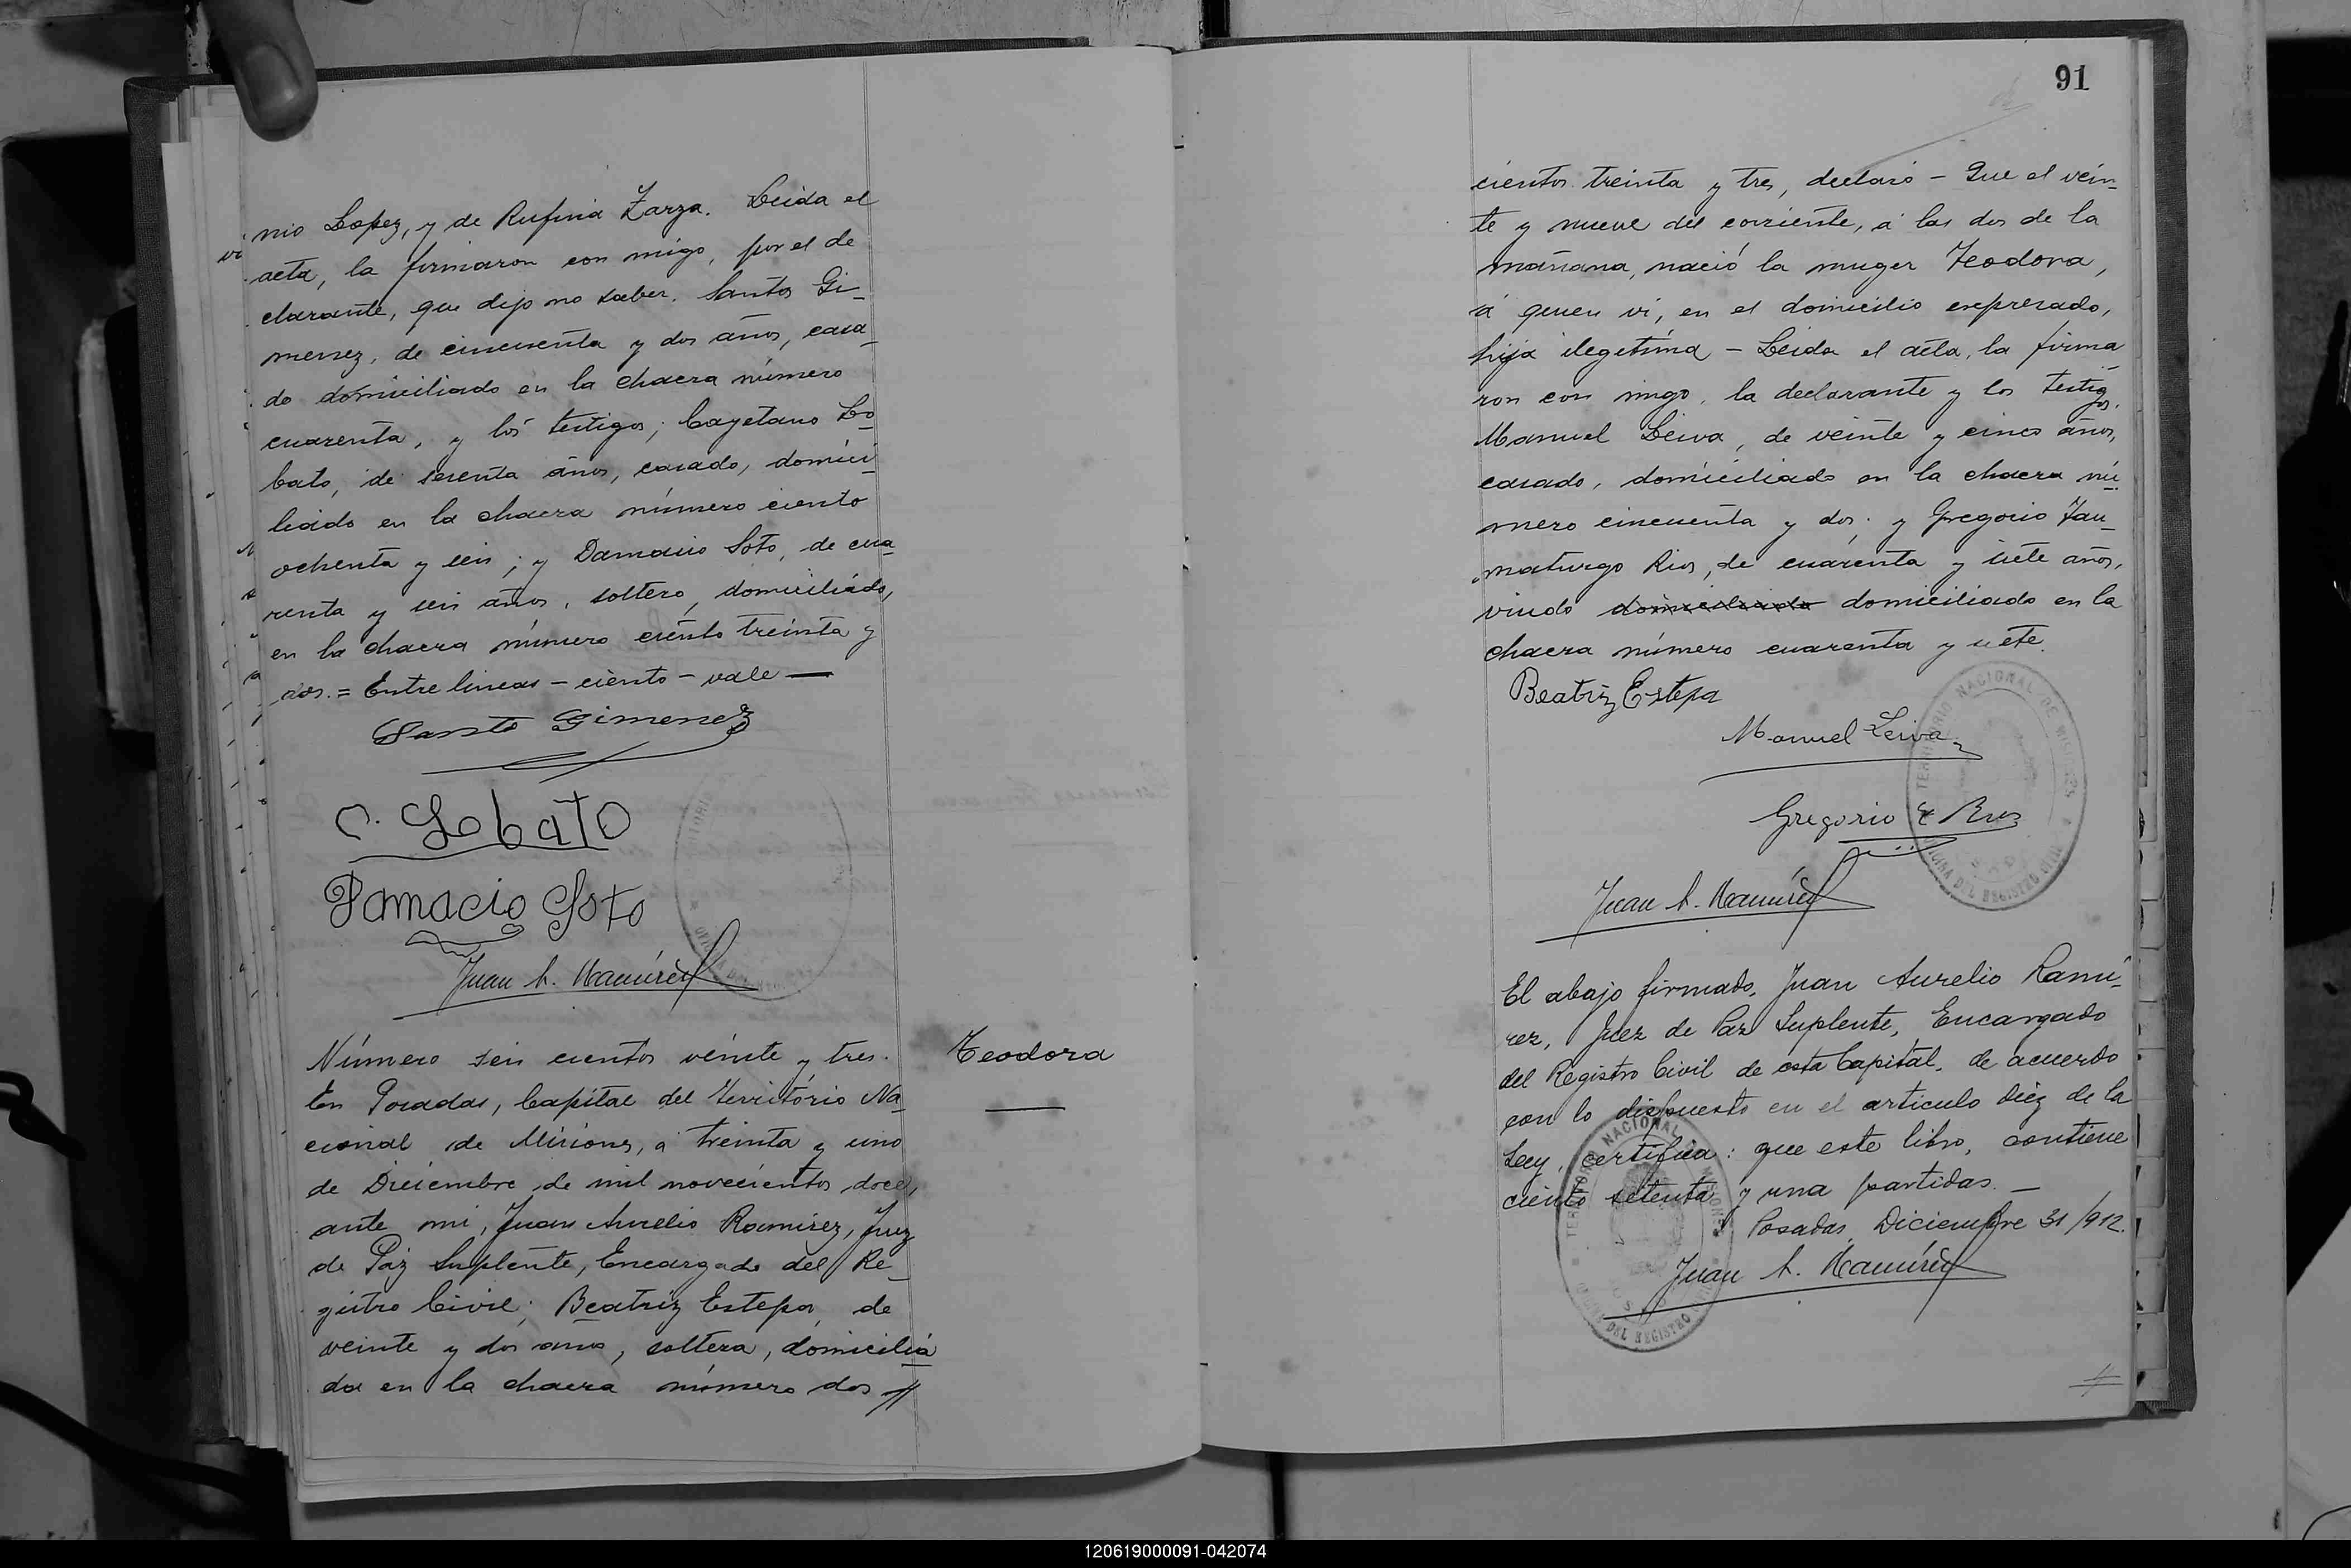 nio Lopez, y de Rufina Zarza. Leida el
acta, la firmaron con migo, por el de
clarante, que dijo no saber. Santos Gi-
menez, de cincuenta y dos años, casa
do domiciliado en la chacra número
cuarenta, y los testigos; Cayetano Lo
bato, de sesenta años, casado, domici
liado en la chacra número ciento
ochenta y seis; y Damacio Soto, de cua
renta y seis años, soltero, domiciliado,
en la chacra número ciento treinta y
dos. = Entre lineas - ciento - vale —
Santo Gimenez
C. Lobato
Damacio Soto
Juan A. Ramírez
Número seis cientos veinte y tres.
En Posadas, Capital del Territorio Na
cional de Misiones, a treinta y uno
de Diciembre de mil novecientos doce,
ante mi, Juan Aurelio Ramirez, Juez
de Paz Suplente, Encargado del Re-
gistro Civil; Beatriz Estepa, de
veinte y dos años, soltera, domicilia
da en la chacra número dos //
Teodora
91
cientos treinta y tres, declaró - Que el vein-
te y nueve del corriente, á las dos de la
mañana, nació la muger Teodora,
á quien ví, en el domicilio expresado,
hija ilegitima - Leida el acta, la firma
ron con migo, la declarante y los testig
os.
Manuel Leiva, de veinte y cinco años,
casado, domiciliado en la chacra nú
mero cincuenta y dos; y Gregorio Tau-
maturgo Rios, de cuarenta y siete años,
viudo domiciliado domiciliado en la
chacra número cuarenta y siete.
Beatriz Estepa
Manuel Leiva
Gregorio T Rios
Juan A. Ramírez
TERRITORIO NACIONAL DE MISIONES
OFICINA DEL REGISTRO CIVIL
El abajo firmado, Juan Aurelio Rami-
rez, Juez de Paz Suplente, Encargado
del Registro Civil de esta Capital, de acuerdo
con lo dispuesto en el articulo diez de la
Ley, certifica: que este libro, contiene
ciento setenta y una partidas. —
Posadas, Diciembre 31/912.
Juan A. Ramírez
TERRITORIO NACIONAL MISIONES
OFICINA DEL REGISTRO CIVIL
120619000091-042074